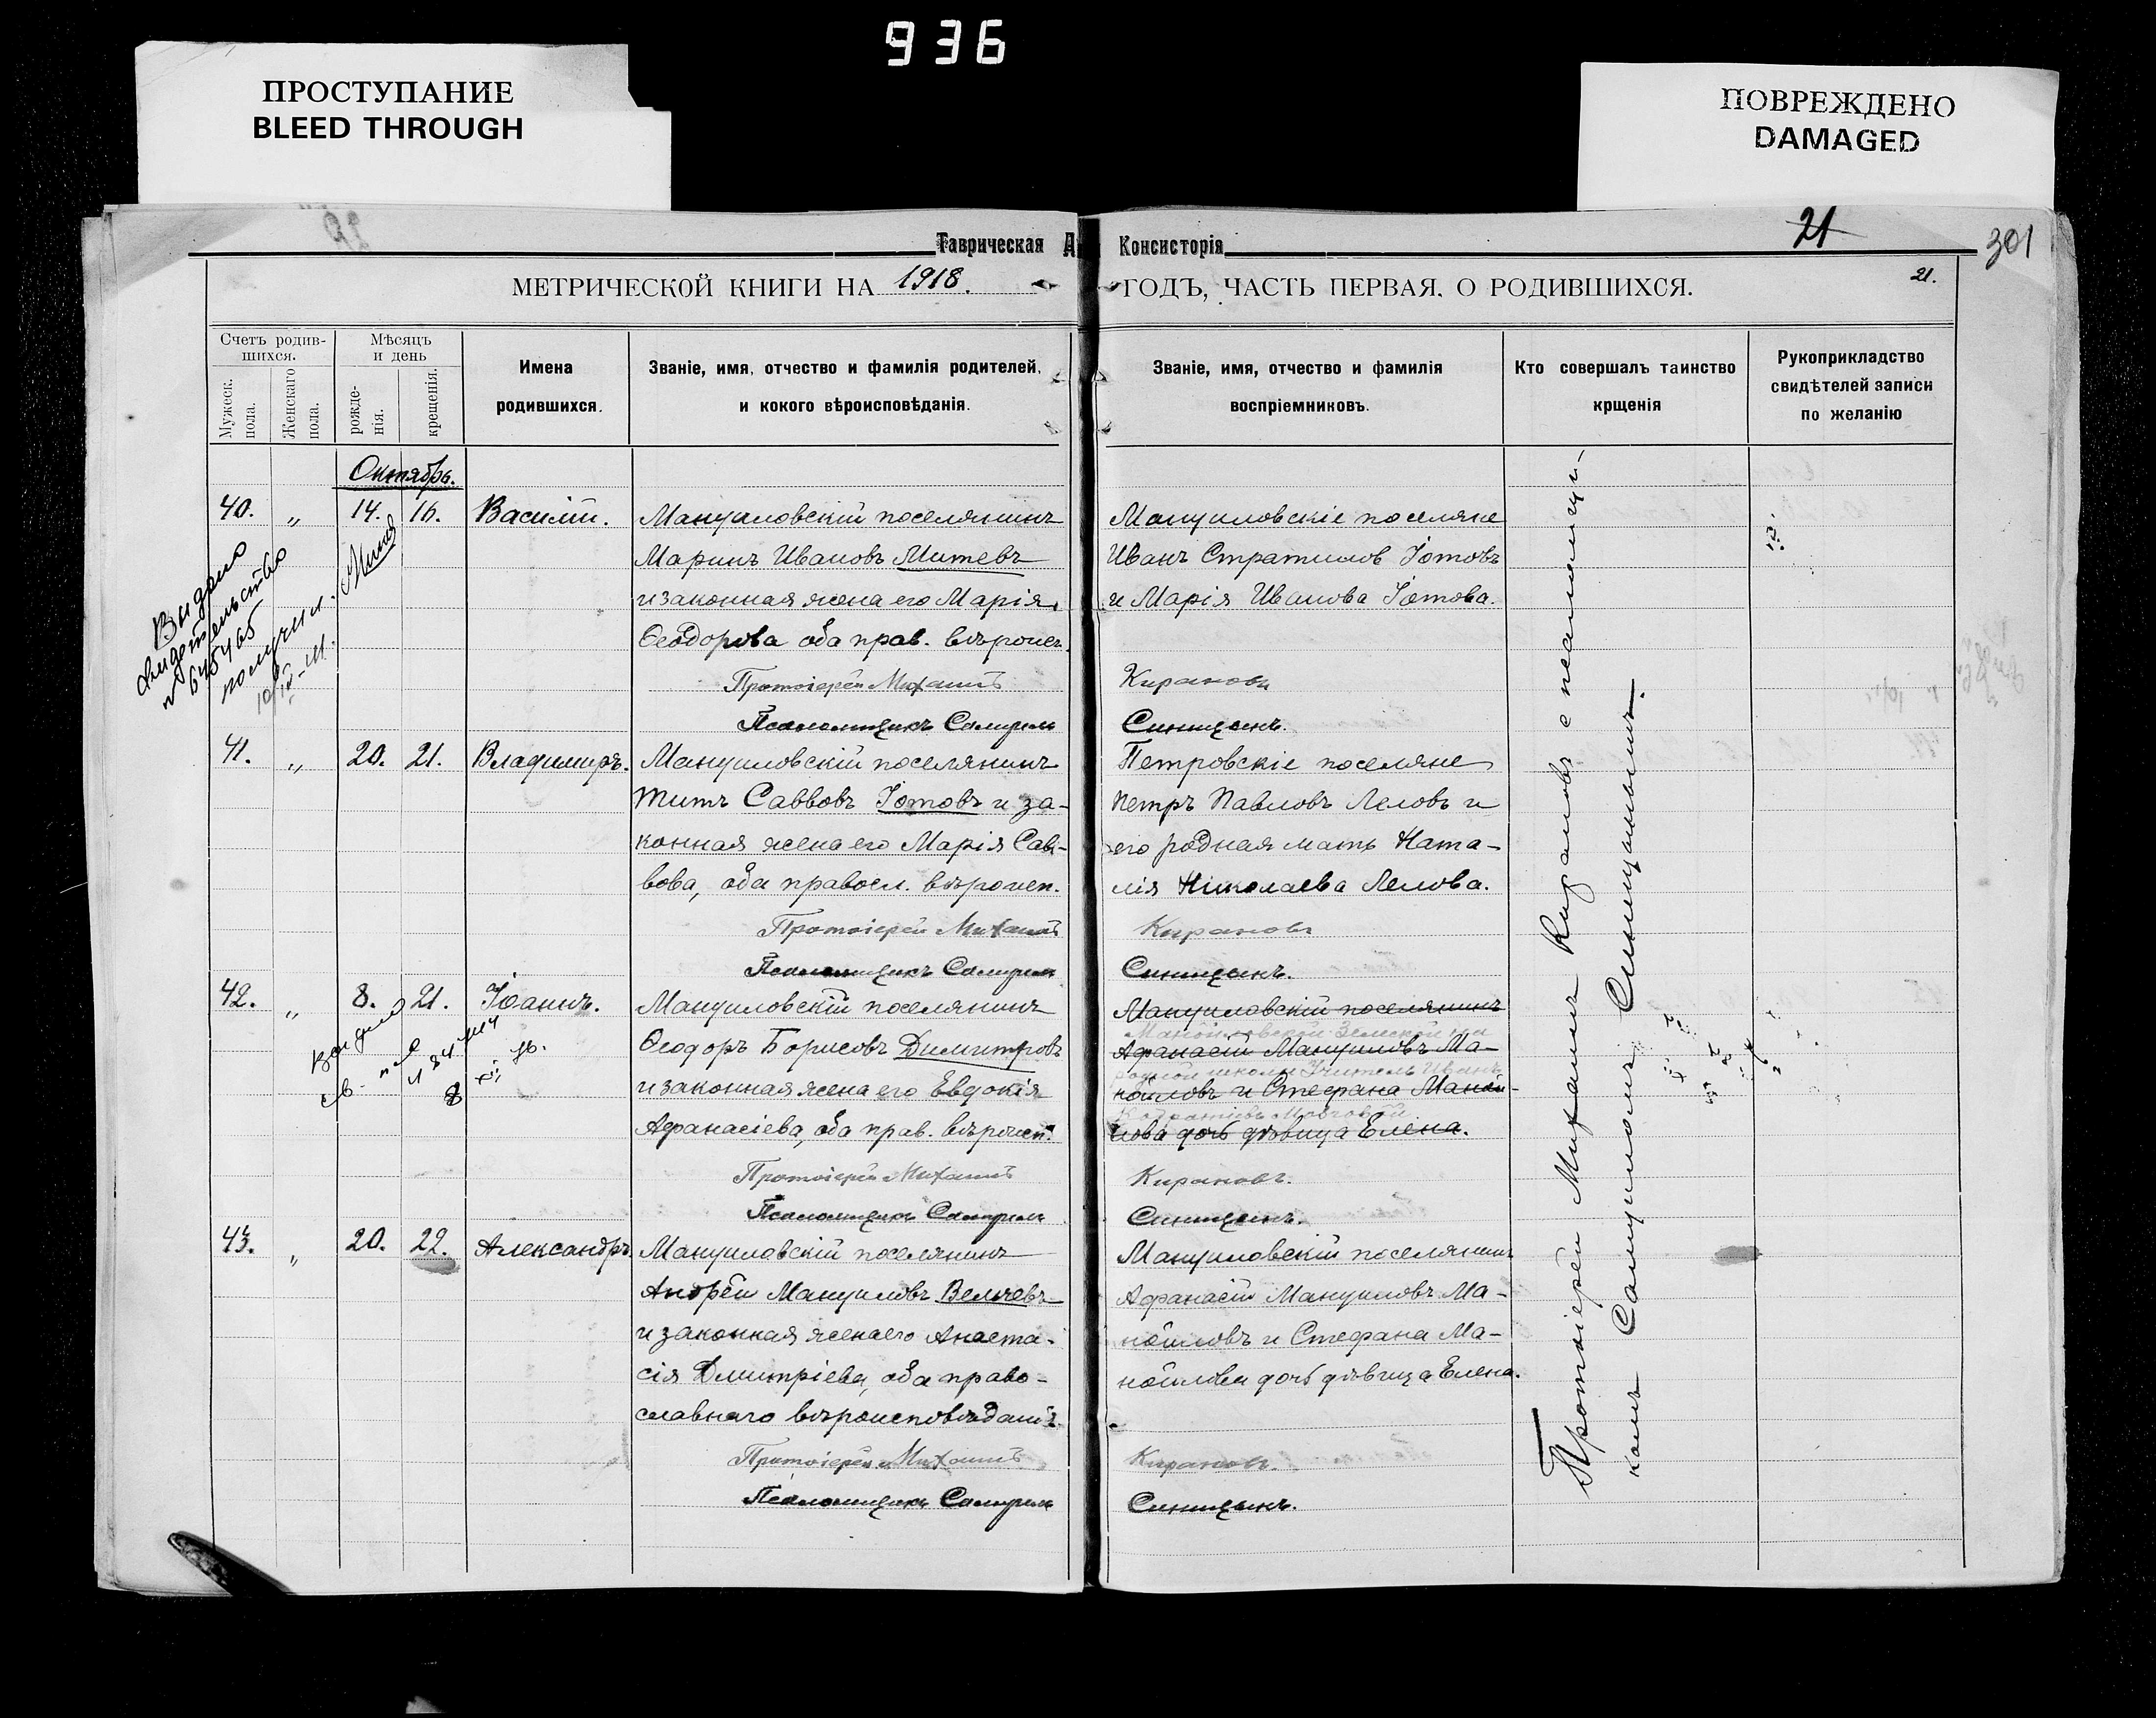 936
ПРОСТУПАНИЕ
BLEED THROUGH
ПОВРЕЖДЕНО
DAMAGED
Таврическая Консисторія
21
301
МЕТРИЧЕСКОЙ КНИГИ НА 1918. ГОДЪ, ЧАСТЬ ПЕРВАЯ. О РОДИВШИХСЯ.
21.
Счетъ родив-
шихся.
Мужеск.
пола.
Женскаго
пола.
Мѣсяцъ
и день
рожде-
нія.
крещенія.
Имена
родившихся.
Званіе, имя, отчество и фамилія родителей,
и кокого вѣроисповѣданія.
Званіе, имя, отчество и фамилія
воспріемниковъ.
Кто совершалъ таинство
крщенія
Рукоприкладство
свидѣтелей записи
по желанію
Октябрь.
40. „ 14. 16. Василій.
Мануиловскій поселянинъ
Маринъ Ивановъ Митевъ
и законная жена его Марія
Ѳеодорова оба прав. вѣроисп.
Протоіерей Михаилъ
Псаломщикъ Самуилъ
Мануиловскіе поселяне
Иванъ Стратиловъ Іотовъ
и Марія Иванова Іотова.
Кирановъ
Синицынъ.
Выдано
свидѣтельство
получил.
41. „ 20. 21. Владимиръ.
Мануиловскій поселянинъ
Титъ Саввовъ Іотовъ и за-
конная жена его Марія Сав-
вова, оба правосл. вѣроисп.
Протоіерей Михаилъ
Псаломщикъ Самуилъ
Петровскіе поселяне
Петръ Павловъ Леловъ и
его родная мать Ната-
лія Николаева Лелова.
Кирановъ
Синицынъ.
42. „ 8. 21. Іоаннъ.
Мануиловскій поселянинъ
Ѳеодоръ Борисовъ Димитровъ
и законная жена его Евдокія
Афанасіева, оба прав. вѣроисп.
Протоіерей Михаилъ
Псаломщикъ Самуилъ
Мануиловскій поселянинъ
Афанасій Мануиловъ Ма-
нойловъ и Стефана Маной-
лова дочь дѣвица Елена.
учитель Иванъ
Кирановъ.
Синицынъ.
43. „ 20. 22. Александръ.
Мануиловскій поселянинъ
Андрей Мануиловъ Велчевъ
и законная жена его Анаста-
сія Дмитріева, оба право-
славнаго вѣроисповѣданія.
Протоіерей Михаилъ
Псаломщикъ Самуилъ
Мануиловскій поселянинъ
Афанасій Мануиловъ Ма-
нойловъ и Стефана Ма-
нойлова дочь дѣвица Елена.
Кирановъ.
Синицынъ.
Протоіерей Михаилъ Кирановъ с псаломщи-
комъ Самуиломъ Синицынымъ.